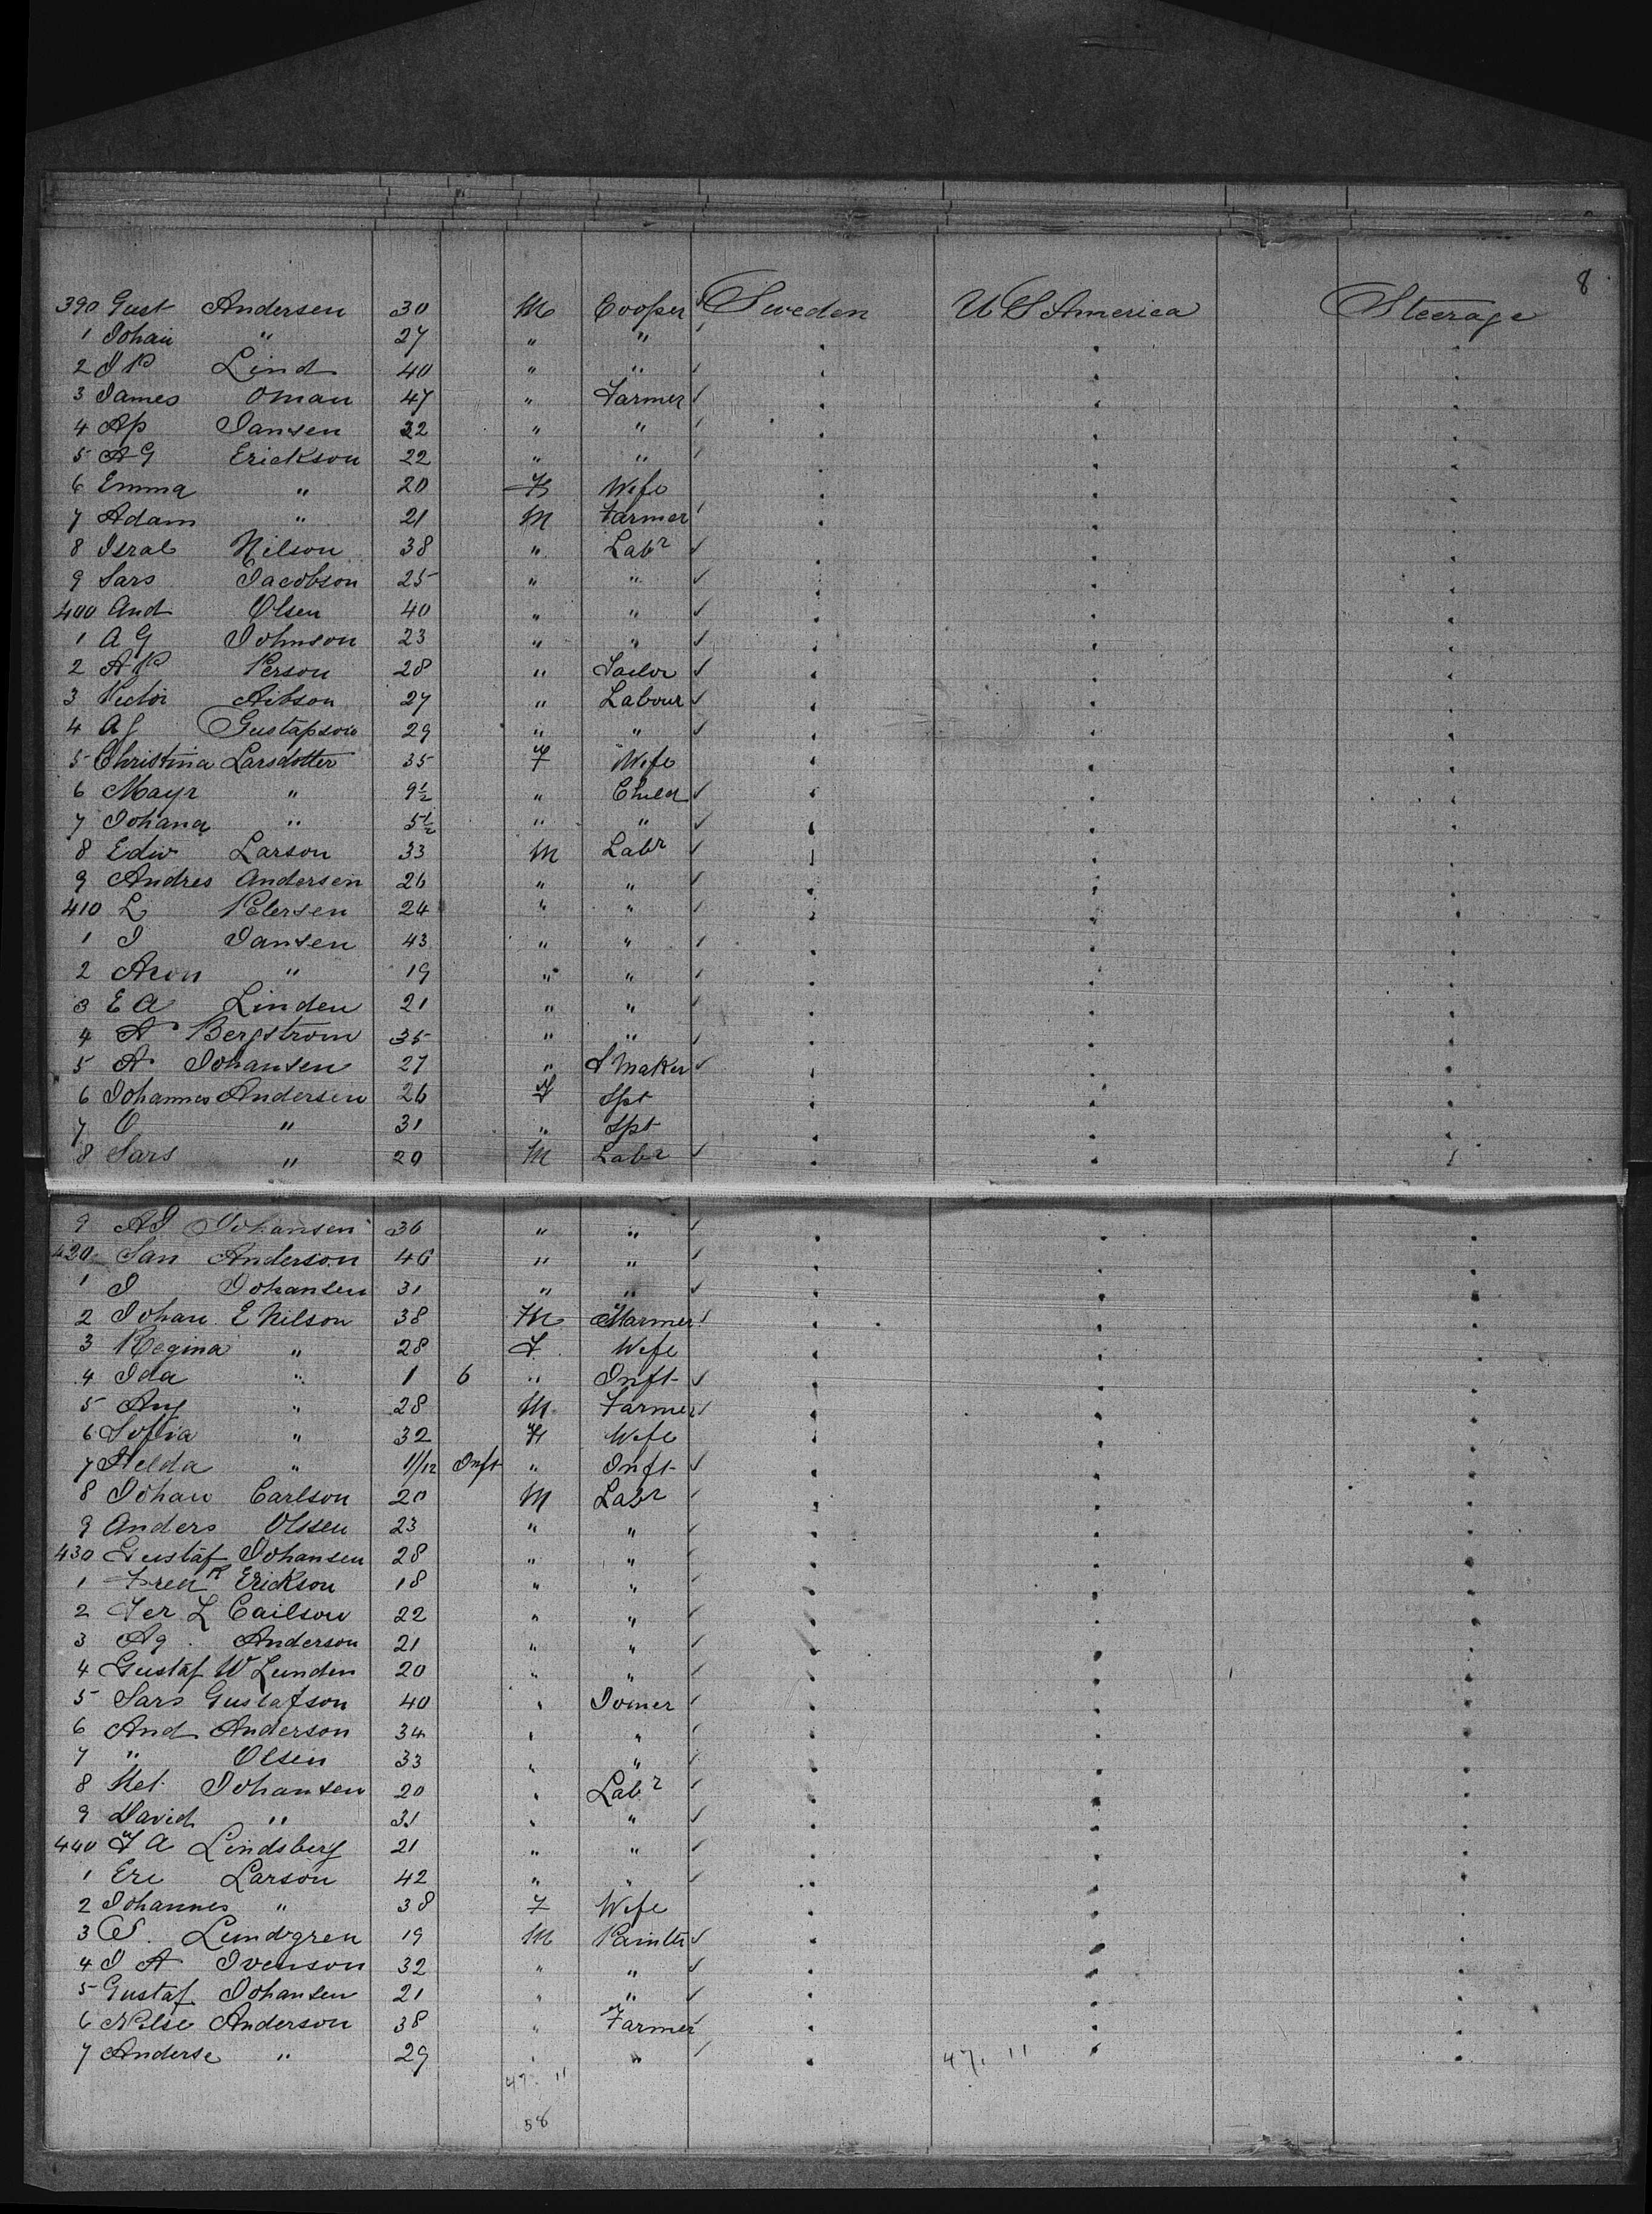 8
390 Gust Andersen 30 M Cooper Sweden U S America Steerage
1 Johan " 27 " "
2 J P Lind 40 " "
3 James Oman 47 " Farmer
4 Ap Jansen 32 " "
5 A G Erickson 22 " "
6 Emma " 20 F Wife
7 Adam " 21 M Farmer
8 Isral Nilson 38 " Labr
9 Lars Jacobson 25 " "
400 And Olsen 40 " "
1 A G Johnson 23 " "
2 A P Person 28 " Tailor
3 Victor 27 " Labour
4 Gustapson 29 " "
5 Christina Larsdotter 35 F Wife
6 Mayr " 9½ " Child
7 Johana " 5½ " "
8 Edw Larson 33 M Labr
9 Andres Andersen 26 " "
410 L Petersen 24 " "
1 J Jansen 43 " "
2 Aron " 19 " "
3 E A Linden 21 " "
4 A Bergstrom 35 " "
5 A Johansen 27 " S Maker
6 Johannes Andersen 26 F Spt
7 O " 31 " Spt
8 Lars " 29 M Labr
9 A J Johansen 36 " "
420 Lan Anderson 46 " "
1 J Johansen 31 " "
2 Johan E Nilson 38 M Farmer
3 Regina " 28 F Wife
4 Ida " 1 6 " Inft
5 Aug " 28 M Farmer
6 Sofia " 32 F Wife
7 Helda " 11/12 Inft " Inft
8 Johan Carlson 20 M Labr
9 Anders Olssen 23 " "
430 Gustaf Johansen 28 " "
1 Fredk Erickson 18 " "
2 Fer L Carlson 22 " "
3 Ag Anderson 21 " "
4 Gustaf W Lunden 20 " "
5 Lars Gustafson 40 " Joiner
6 And Anderson 34 " "
7 " Olsen 33 " "
8 Johansen 20 " Labr
9 David " 31 " "
440 F A Lindsberg 21 " "
1 Eric Larson 42 " "
2 Johannes " 38 F Wife
3 Lundgren 19 M Painter
4 J A Ivenson 32 " "
5 Gustaf Johansen 21 " "
6 Nilse Anderson 38 " Farmer
7 Anderse " 29 " "
47. 11
47. 11
58